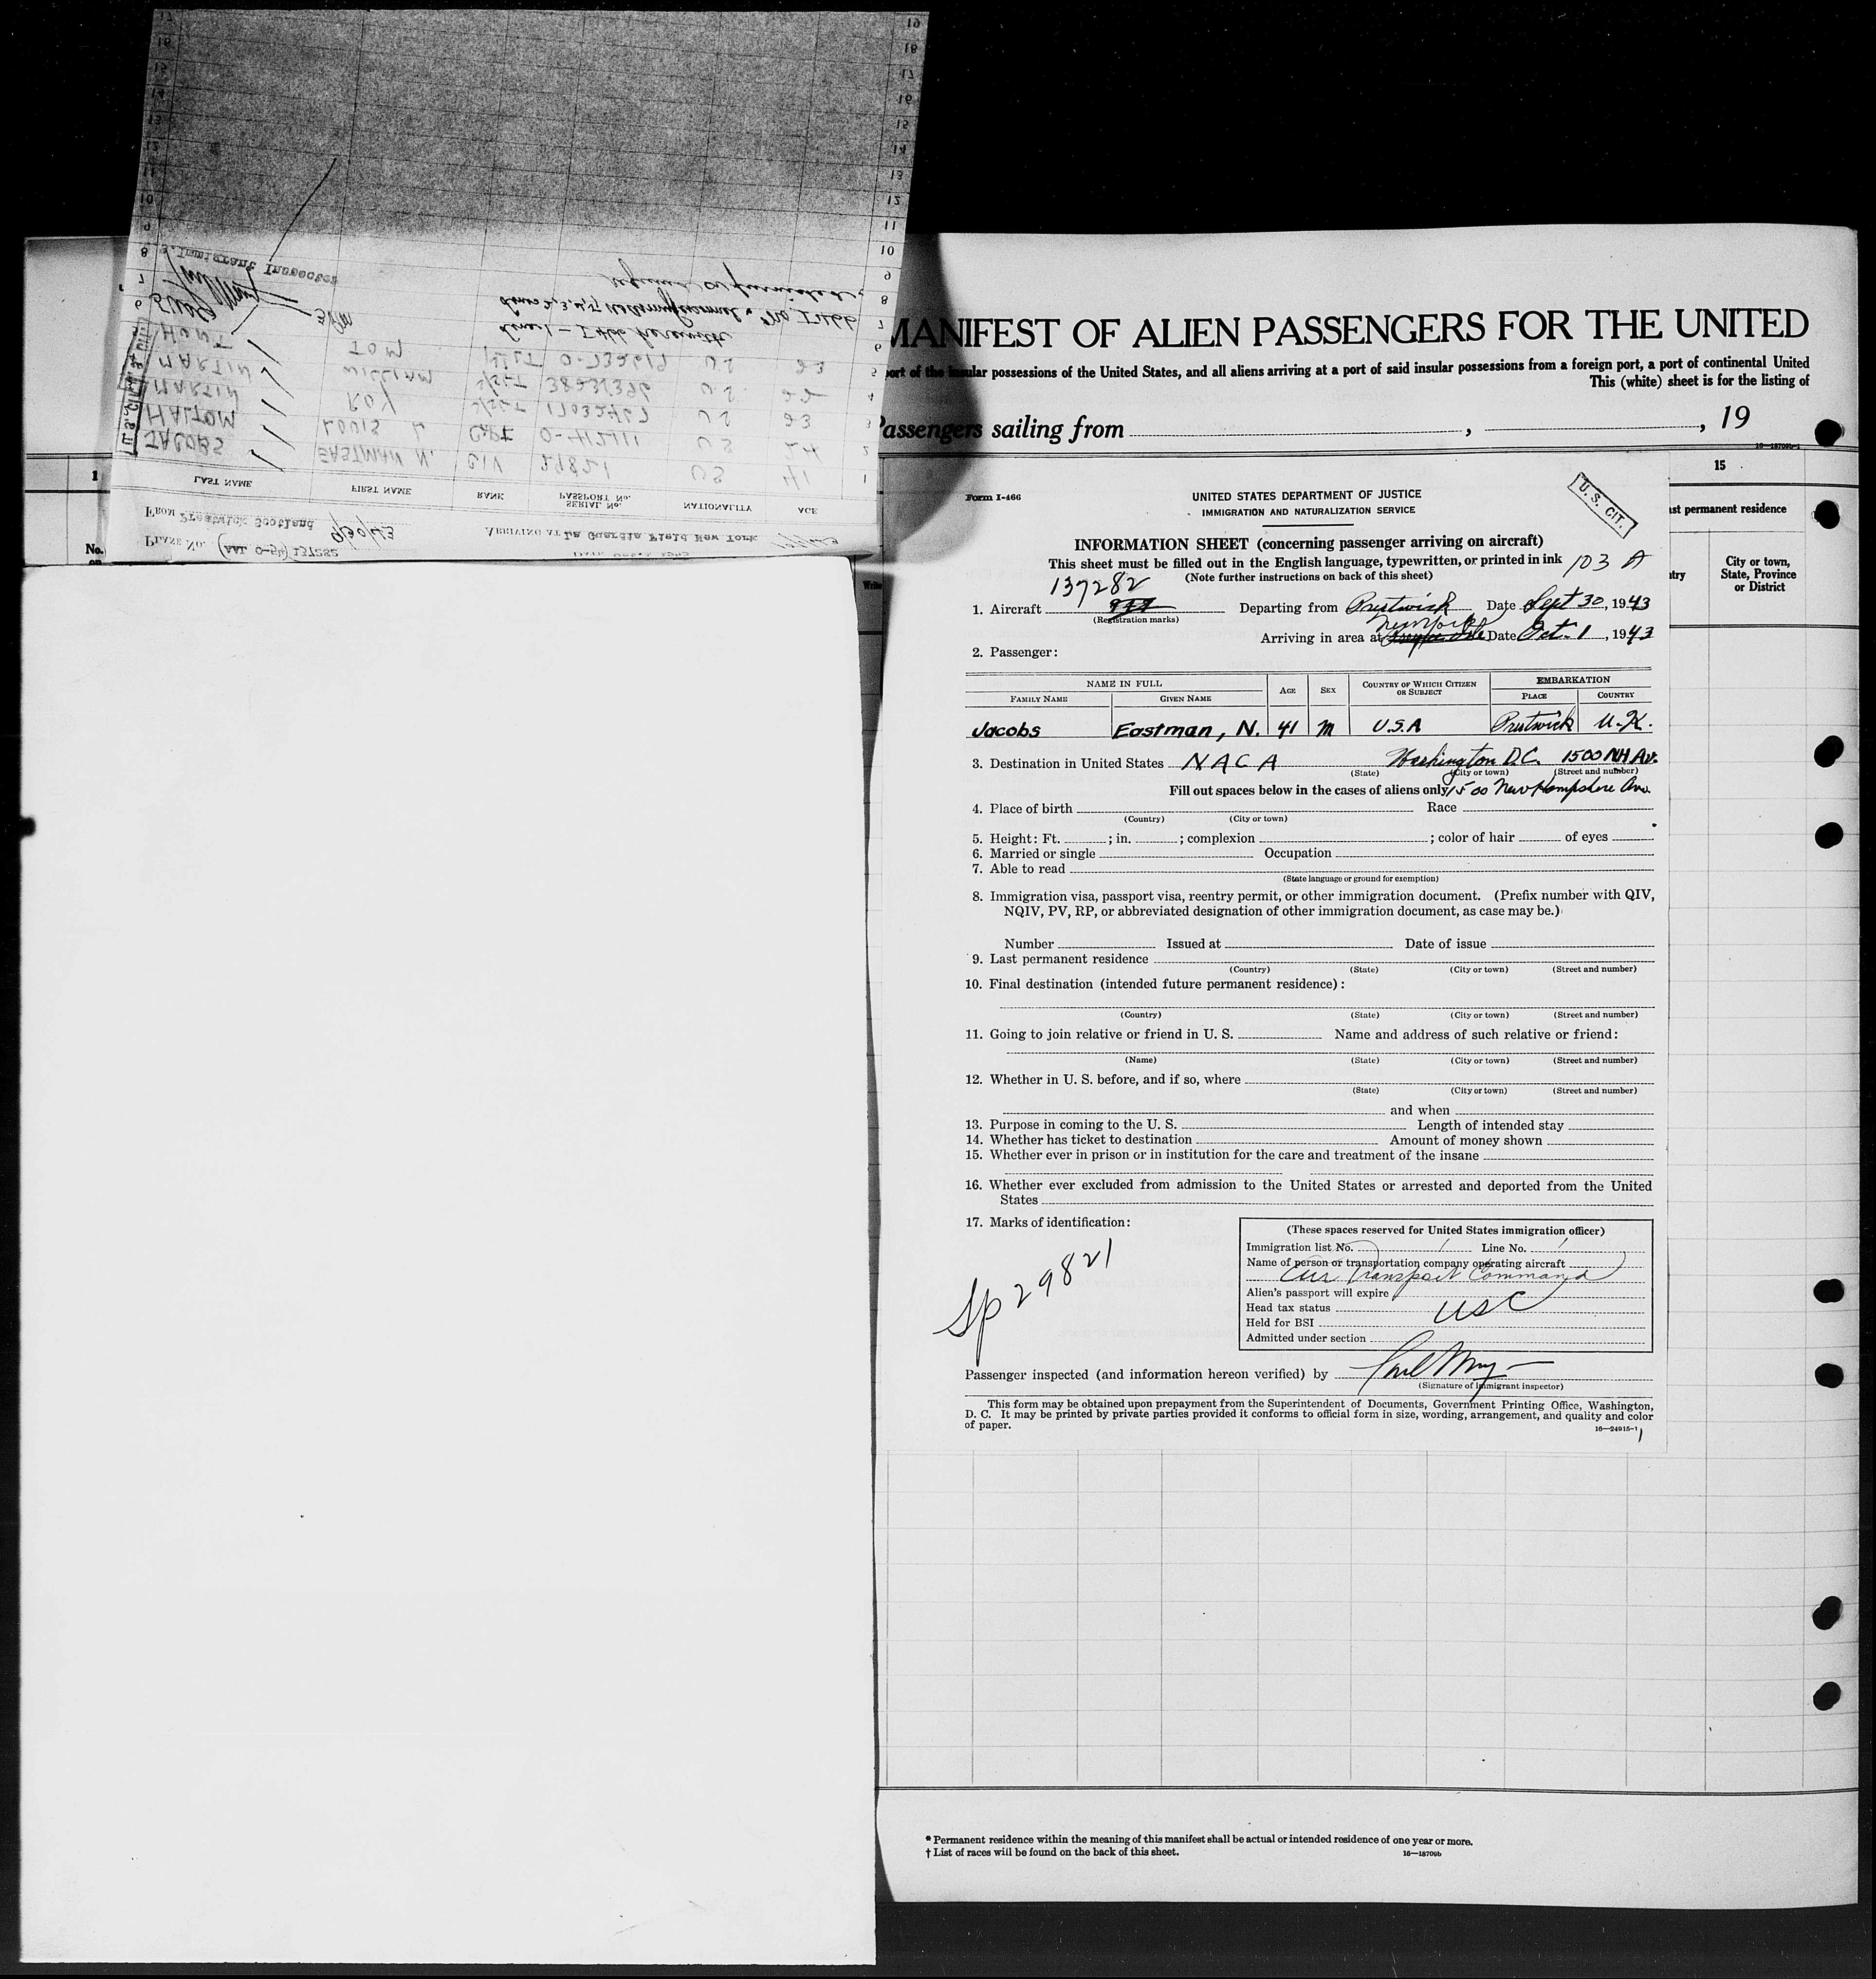 MANIFEST OF ALIEN PASSENGERS FOR THE UNITED
port of the insular possessions of the United States, and all aliens arriving at a port of said insular possessions from a foreign port, a port of continental United
This (white) sheet is for the listing of
Passengers sailing from , , 19
16—18709b-1
1
No.
15
ast permanent residence
City or town, State, Province or District
PLANE No. (AAL O-54) 137282
FROM Prestwick Scotland 9/30/43 ARRIVING AT La Guardia Field New York
LAST NAME FIRST NAME RANK PASSPORT No. SERIAL No. NATIONALITY AGE
1 JACOBS EASTMAN N. CIV 29821 US 41
2 HALTOM LOUIS CAPT O-412111 US 24
MARTIN ROY S/SGT US 23
MARTIN WILLIAM S/SGT US 22
HUNT TOM US 23
Line 1 — I466 herewith
Immigrant Inspector
Form I-466
UNITED STATES DEPARTMENT OF JUSTICE
IMMIGRATION AND NATURALIZATION SERVICE
U. S. CIT.
INFORMATION SHEET (concerning passenger arriving on aircraft)
This sheet must be filled out in the English language, typewritten, or printed in ink 103 A
(Note further instructions on back of this sheet)
137282
1. Aircraft Departing from Prestwick Date Sept 30, 1943
(Registration marks)
New York
Arriving in area at Date Oct. 1, 1943
2. Passenger:
NAME IN FULL AGE SEX COUNTRY OF WHICH CITIZEN OR SUBJECT EMBARKATION
FAMILY NAME GIVEN NAME PLACE COUNTRY
Jacobs Eastman, N. 41 M U.S.A Prestwick U.K.
3. Destination in United States NACA Washington D.C. 1500 NH Av.
(State) (City or town) (Street and number)
Fill out spaces below in the cases of aliens only 1500 New Hampshire Ave.
4. Place of birth Race
(Country) (City or town)
5. Height: Ft. ; in. ; complexion ; color of hair of eyes
6. Married or single Occupation
7. Able to read
(State language or ground for exemption)
8. Immigration visa, passport visa, reentry permit, or other immigration document. (Prefix number with QIV,
NQIV, PV, RP, or abbreviated designation of other immigration document, as case may be.)
Number Issued at Date of issue
9. Last permanent residence
(Country) (State) (City or town) (Street and number)
10. Final destination (intended future permanent residence):
(Country) (State) (City or town) (Street and number)
11. Going to join relative or friend in U. S. Name and address of such relative or friend:
(Name) (State) (City or town) (Street and number)
12. Whether in U. S. before, and if so, where
(State) (City or town) (Street and number)
and when
13. Purpose in coming to the U. S. Length of intended stay
14. Whether has ticket to destination Amount of money shown
15. Whether ever in prison or in institution for the care and treatment of the insane
16. Whether ever excluded from admission to the United States or arrested and deported from the United
States
17. Marks of identification:
Sp 29821
(These spaces reserved for United States immigration officer)
Immigration list No. 1 Line No. 1
Name of person or transportation company operating aircraft
Air Transport Command
Alien's passport will expire
Head tax status USC
Held for BSI
Admitted under section
Passenger inspected (and information hereon verified) by
(Signature of immigrant inspector)
This form may be obtained upon prepayment from the Superintendent of Documents, Government Printing Office, Washington,
D. C. It may be printed by private parties provided it conforms to official form in size, wording, arrangement, and quality and color
of paper.
16—24915-1
* Permanent residence within the meaning of this manifest shall be actual or intended residence of one year or more.
† List of races will be found on the back of this sheet.
16—18709b